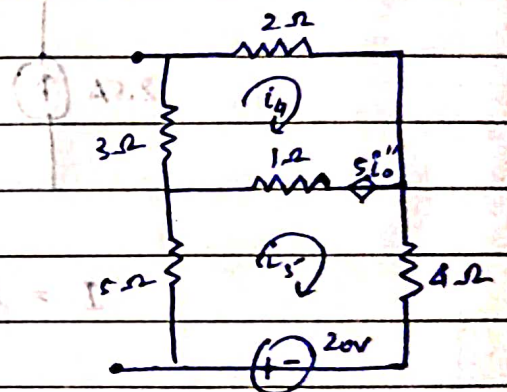 2Ω
i₄
3Ω
1Ω
5i₀"
i₅
5Ω
4Ω
+ -
20V